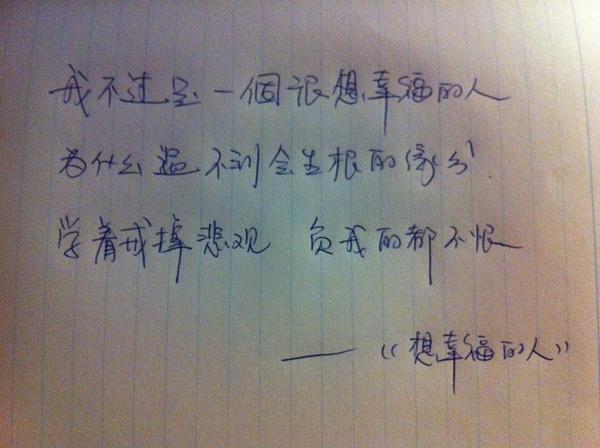 我不过是一個很想幸福的人
为什么遇不到会生根的缘分
学着戒掉悲观 负我的都不恨
——《想幸福的人》